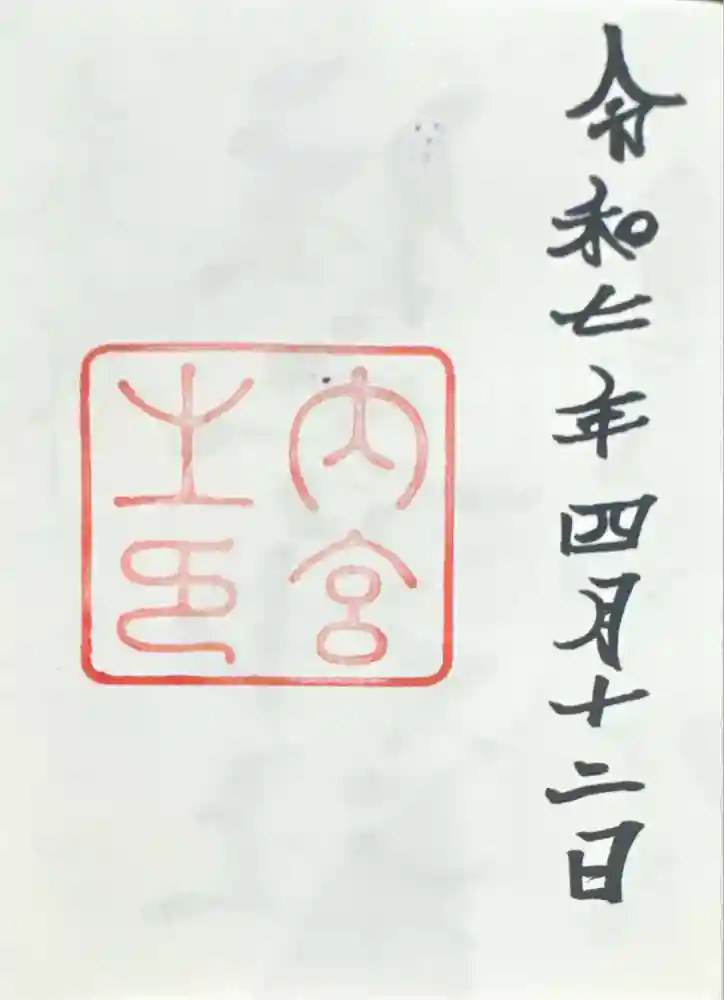 令和七年四月十二日
内宮
之印